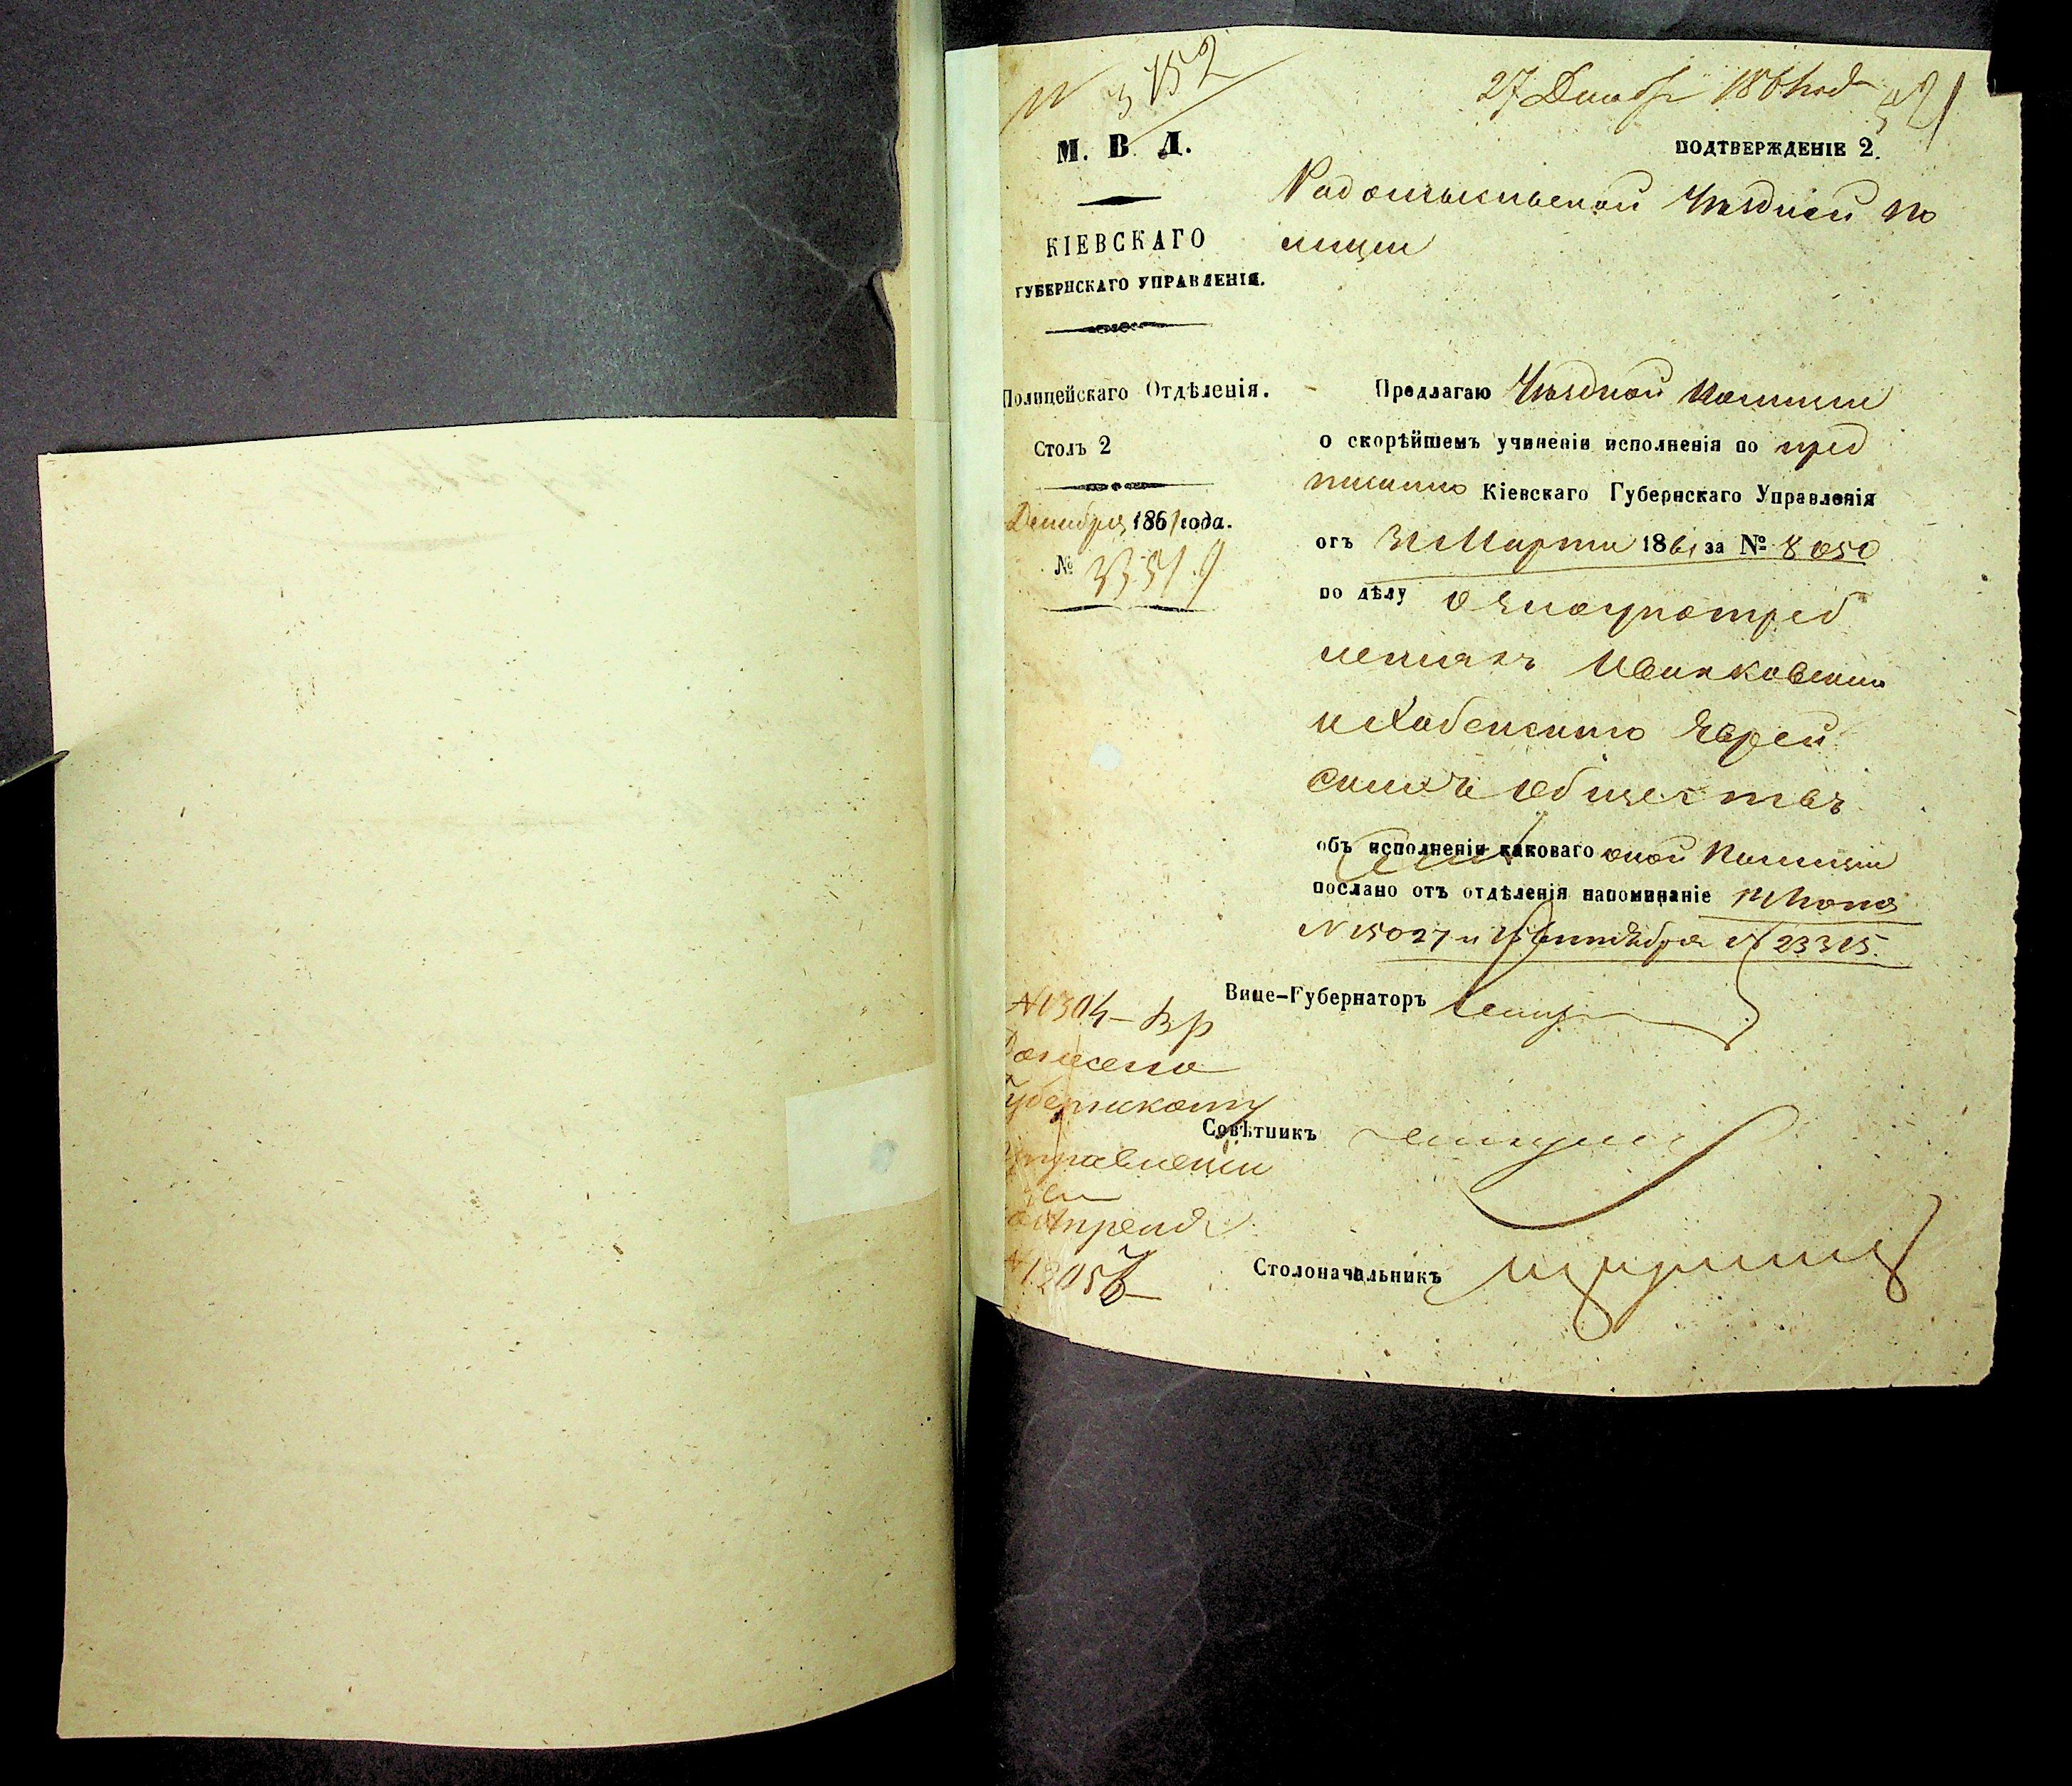 № 3152
27 Декабр 1861 года
М. В. Д.
ПОДТВЕРЖДЕНІЕ 2.
КІЕВСКАГО
ГУБЕРНСКАГО УПРАВЛЕНІЯ.
Полицейскаго Отдѣленія.
Столъ 2
Декабря 1861 года.
№
Радомысльской Уѣздной По
лиціи
Предлагаю Уѣздной Полиціи
о скорѣйшемъ учиненіи исполненія по пред
писанію Кіевскаго Губернскаго Управленія
отъ 31 Марта 1861 за № 8050
по дѣлу о злоупотреб
леніяхъ Иванковскаго
и Хабенскаго Еврей
скихъ обществъ
объ исполненіи каковаго оной Полиціи
послано отъ отдѣленія напоминаніе Іюня
№ 15027 и 15 Сентября № 23315.
Вице-Губернаторъ
Совѣтникъ
Столоначальникъ
№ 1304
Донесено
Губернскому
Управленію
Апреля
№ 12056